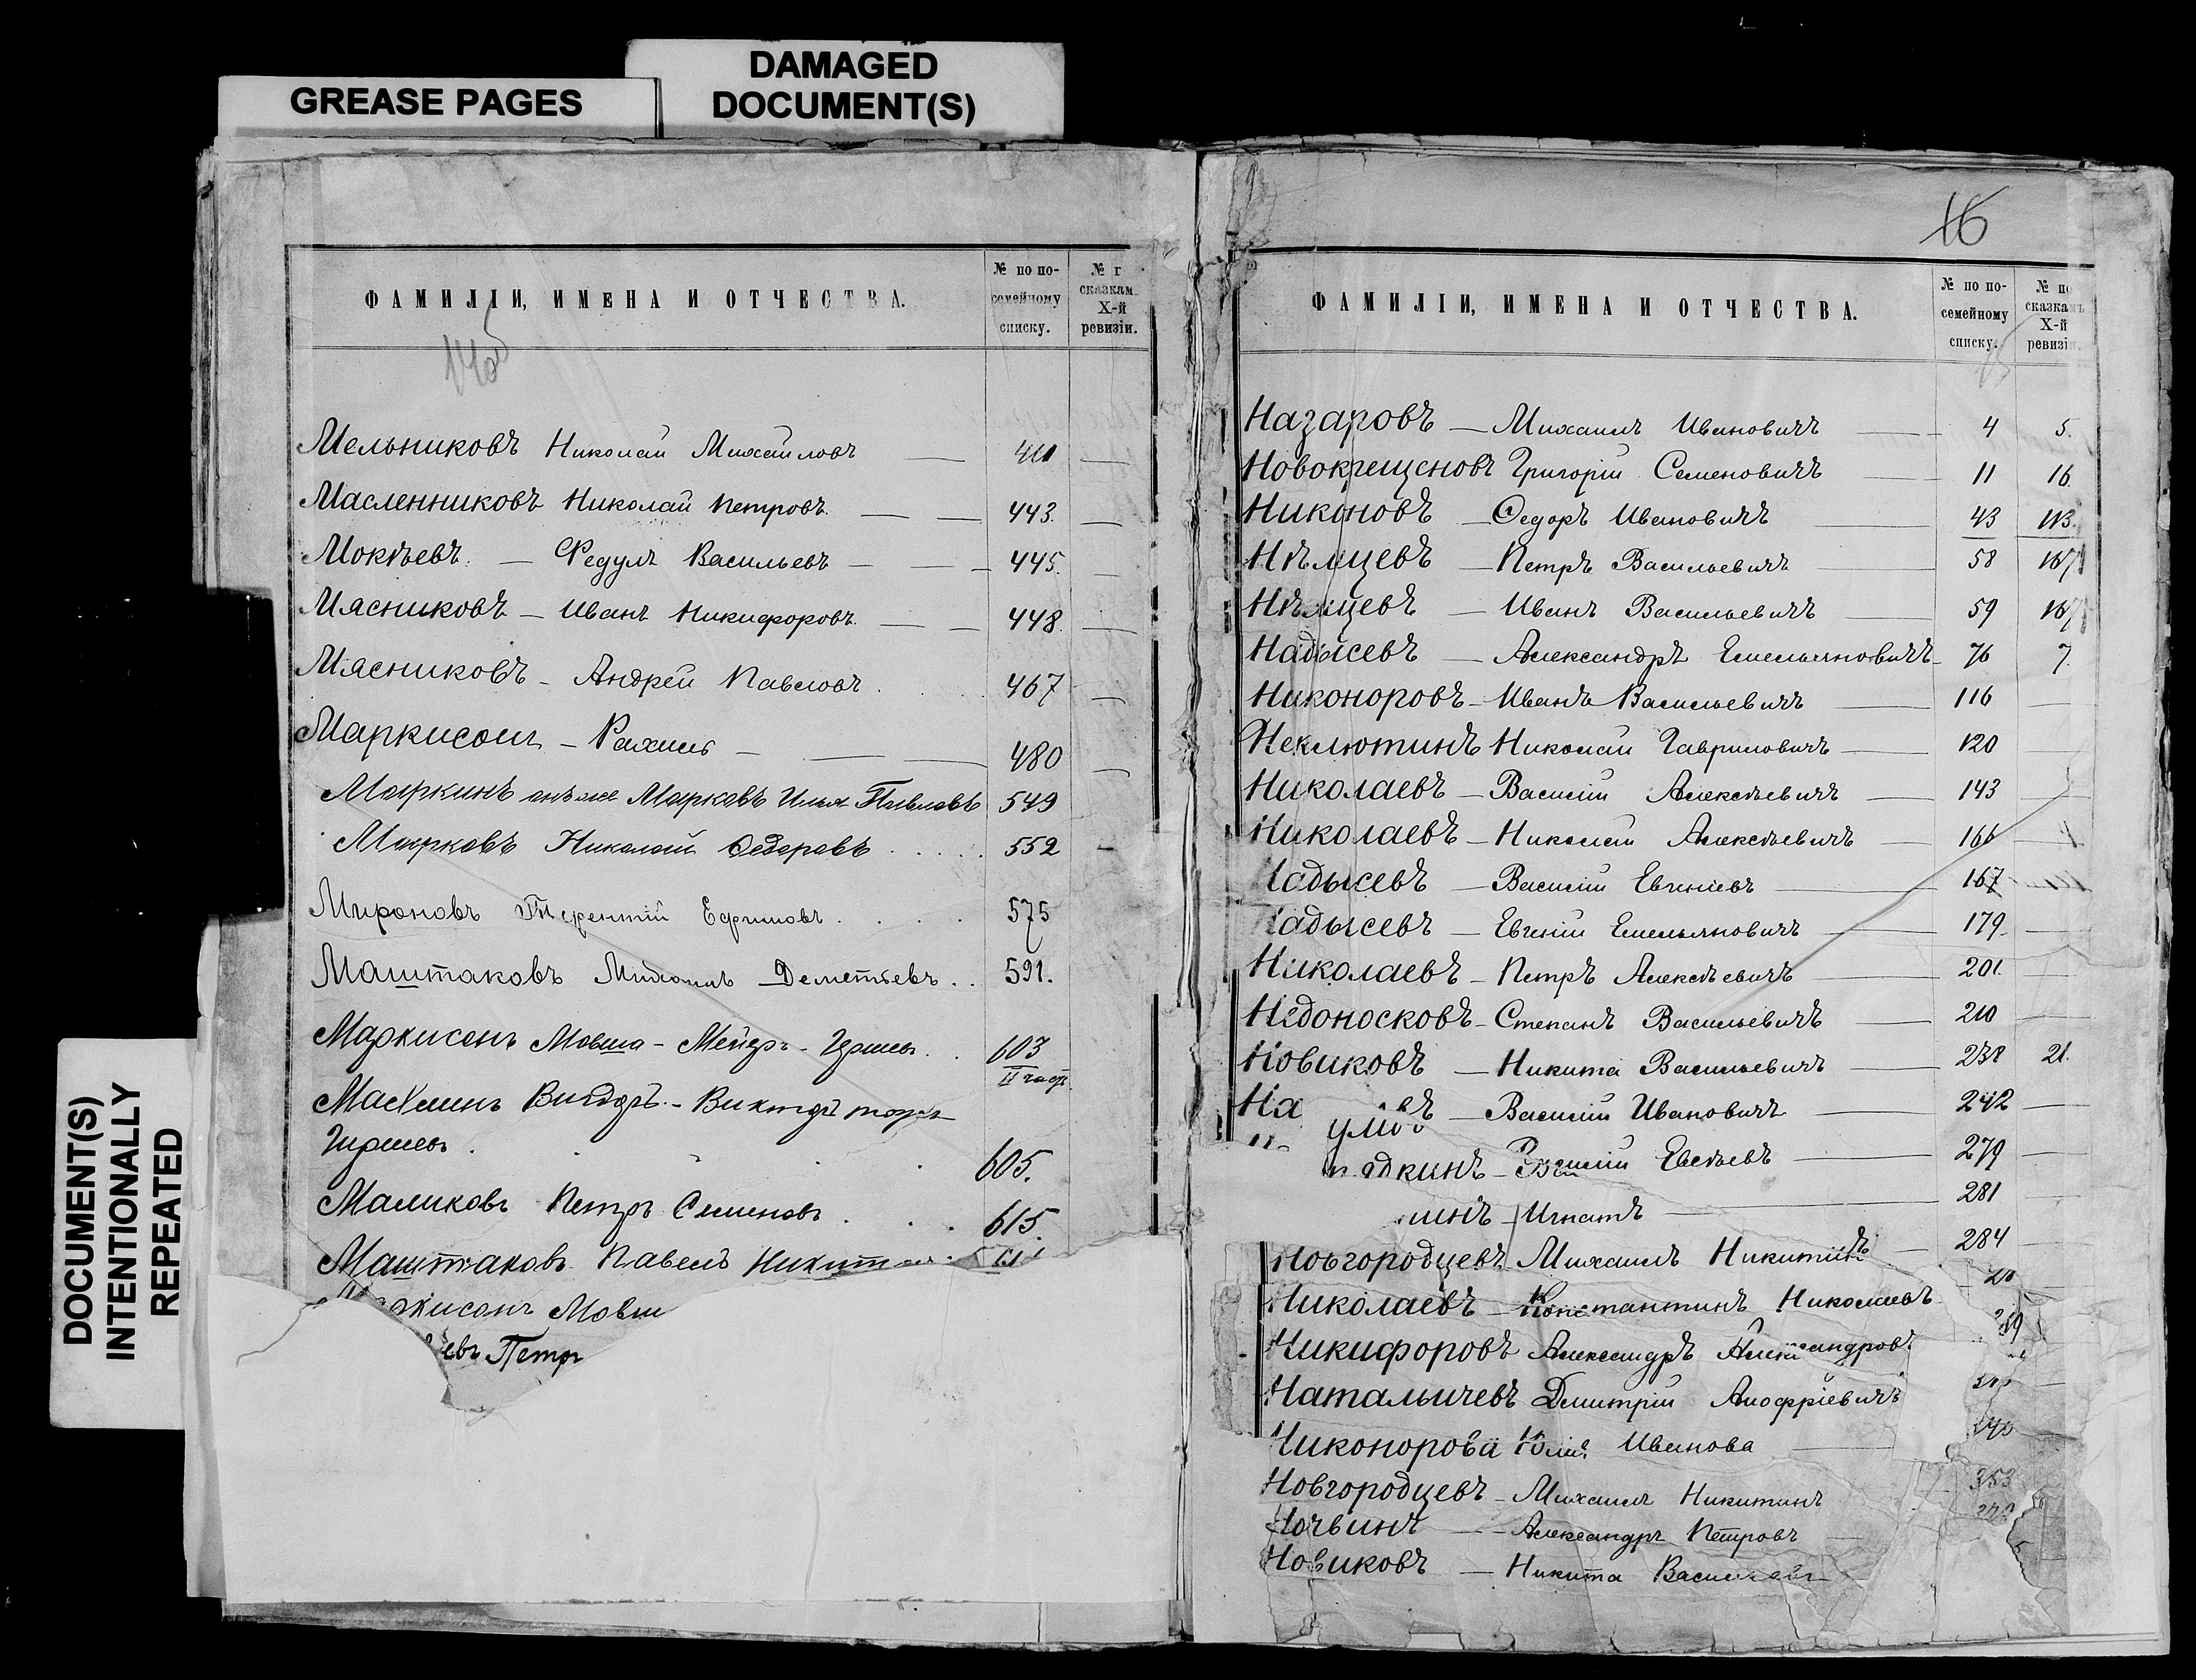 GREASE PAGES
DAMAGED
DOCUMENT(S)
DOCUMENT(S)
INTENTIONALLY
REPEATED
ФАМИЛІИ, ИМЕНА И ОТЧЕСТВА.
№ по по-
семейному
списку.
сказкам
Х-й
ревизіи.
Мельниковъ Николай Михайловъ — 411 —
Масленниковъ Николай Петровъ. — — 443. —
Мокѣевъ. — Федулъ Васильевъ — — — 445. —
Мясниковъ — Иванъ Никифоровъ. — — 448. —
Мясниковъ — Андрей Павловъ . . . 467 —
Маркисонъ — Рахиль — — — 480 —
Маркинъ онъ же Марковъ Илья Павловъ 549
Марковъ Николай Федоровъ . . . . . 552 —
Мироновъ Терентій Ефимовъ . . . . 575
Маштаковъ Михаилъ Деметьевъ . . 591.
Маркисонъ Мовша - Мейеръ - Гиршевъ . . 603
II част.
Гиршевъ .
605.
Маликовъ Петръ Семеновъ . . . 615.
Маштаковъ Павелъ
Мовш
евъ Петр
16
ФАМИЛІИ, ИМЕНА И ОТЧЕСТВА.
№ по по-
семейному
списку.
№ по
сказкамъ
Х-й
ревизіи.
Назаровъ — Михаилъ Ивановичъ — 4 5.
Новокрещеновъ Григорій Семеновичъ — 11 16.
Никоновъ — Ѳедоръ Ивановичъ — 43 113.
Нѣмцевъ — Петръ Васильевичъ — 58 167
Нѣмцевъ — Иванъ Васильевичъ — 59 167
Надысевъ — Александръ Емельяновичъ — 76 7.
Никоноровъ — Иванъ Васильевичъ — 116 —
Неклютинъ Николай Гавриловичъ — 120 —
Николаевъ — Василій Алексѣевичъ — 143 —
Николаевъ — Николай Алексѣевичъ — 166 —
Надысевъ — Василій Евгеніевъ — 167
Надысевъ — Евгеній Емельяновичъ — 179. —
Николаевъ — Петръ Алексѣевичъ — 201. —
Недоносковъ — Степанъ Васильевичъ — 210 —
Новиковъ — Никита Васильевичъ — 238 21.
На въ — Василій Ивановичъ — 242 —
дкинъ — Василій Евсѣевъ — 279 —
инъ — Игнатъ — 281 —
Новгородцевъ Михаилъ Никитинъ — 284 —
Николаевъ — Константинъ Николаевъ
Никифоровъ Александръ Александров. 289
Натальичевъ Дмитрій Анофріевичъ
Никонорова Юлія Иванова —
Новгородцевъ — Михаилъ Никитинъ 353
Ночвинъ — Александръ Петровъ —
Новиковъ — Никита